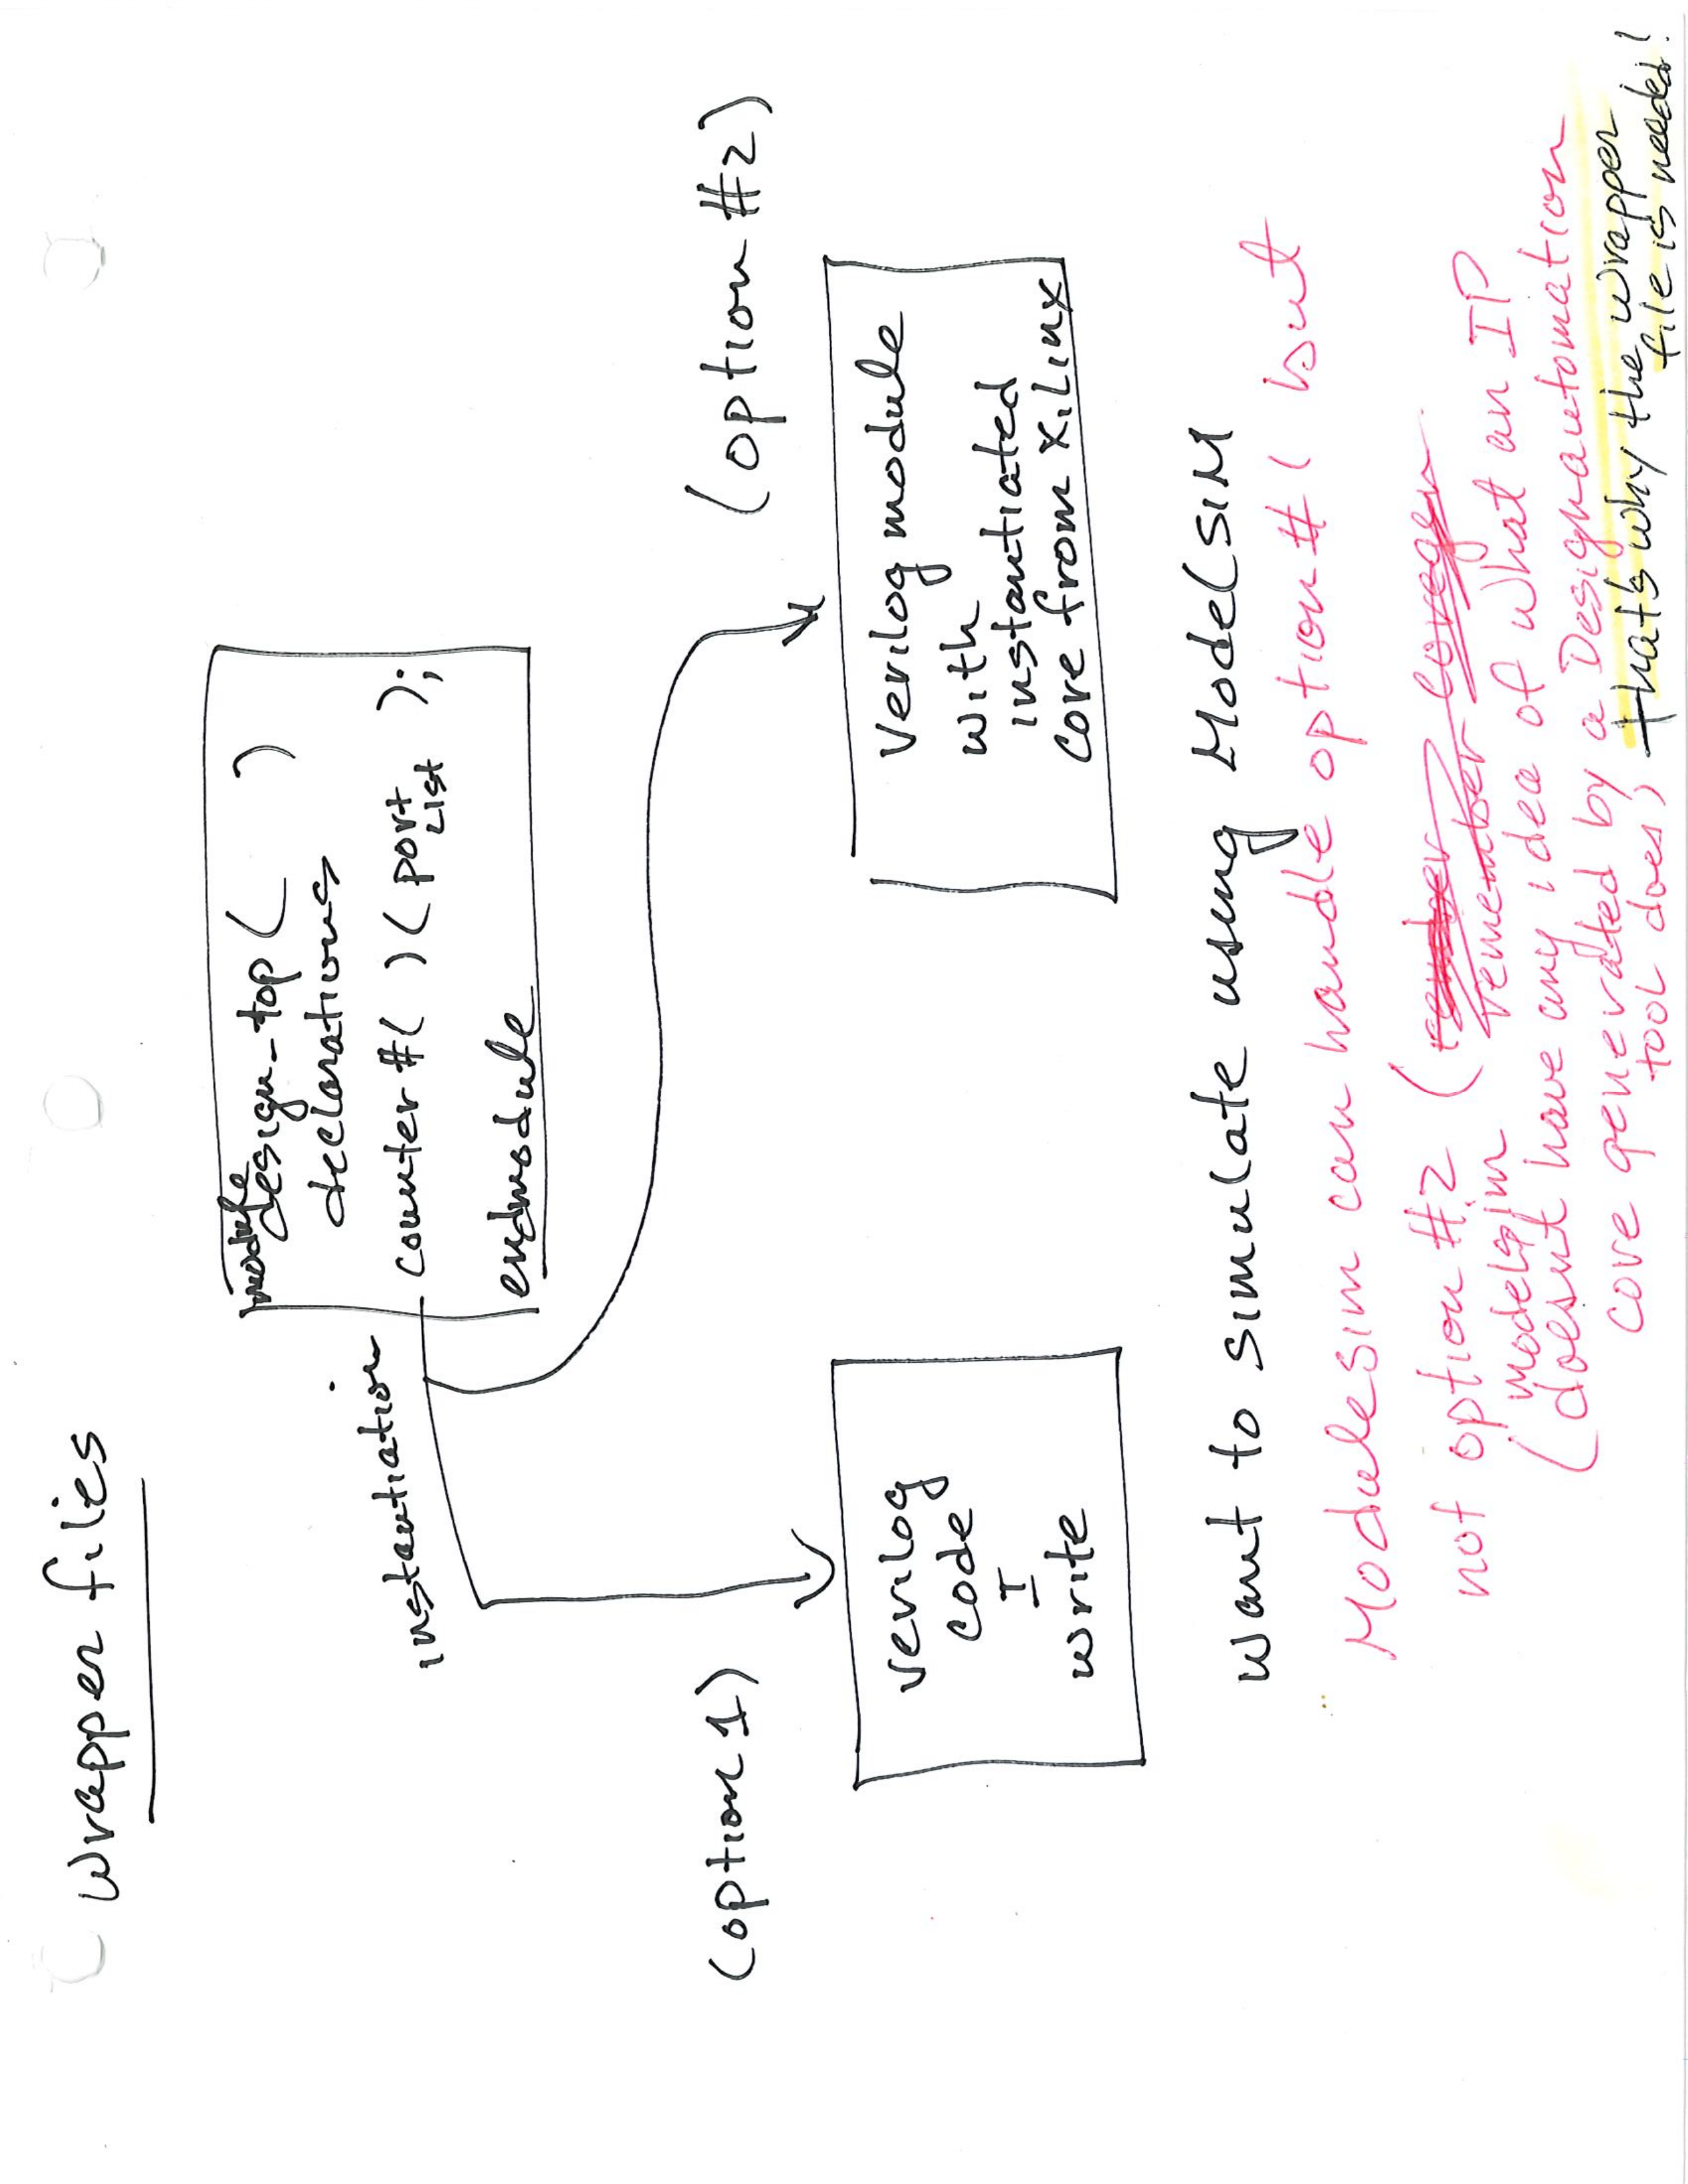 Wrapper files
module
design-top (      )
declarations
instantiation
counter #( ) (port
List );
endmodule
(option 1)
(option #2)
Verilog
code
I
write
Verilog module
with
instantiated
core from xilinx
want to simulate using ModelSIM
Modulesim can handle option #1 but
not option #2 (
remember
modelsim
(doesnt have any idea of what an IP
core generated by a Design automation
tool does)
that's why the wrapper
file is needed!